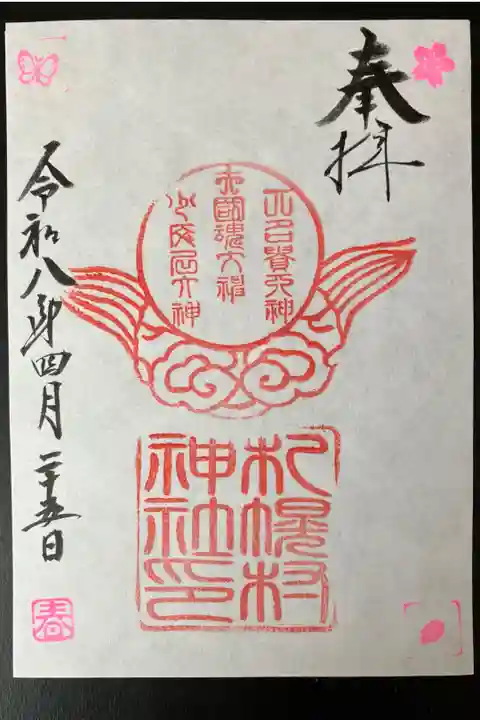 奉拝
大己貴大神
大國魂大神
少彦名大神
札幌村
神社印
令和八年四月二十五日
春